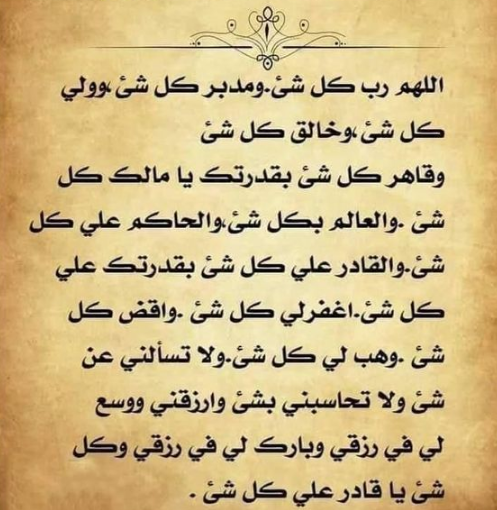 اللهم رب كل شئ.ومدبر كل شئ،وولي
كل شئ،وخالق كل شئ
وقاهر كل شئ بقدرتك يا مالك كل
شئ .والعالم بكل شئ،والحاكم علي كل
شئ.والقادر علي كل شئ بقدرتك علي
كل شئ.اغفرلي كل شئ .واقض كل
شئ .وهب لي كل شئ.ولا تسألني عن
شئ ولا تحاسبني بشئ وارزقني ووسع
لي في رزقي وبارك لي في رزقي وكل
شئ يا قادر علي كل شئ .